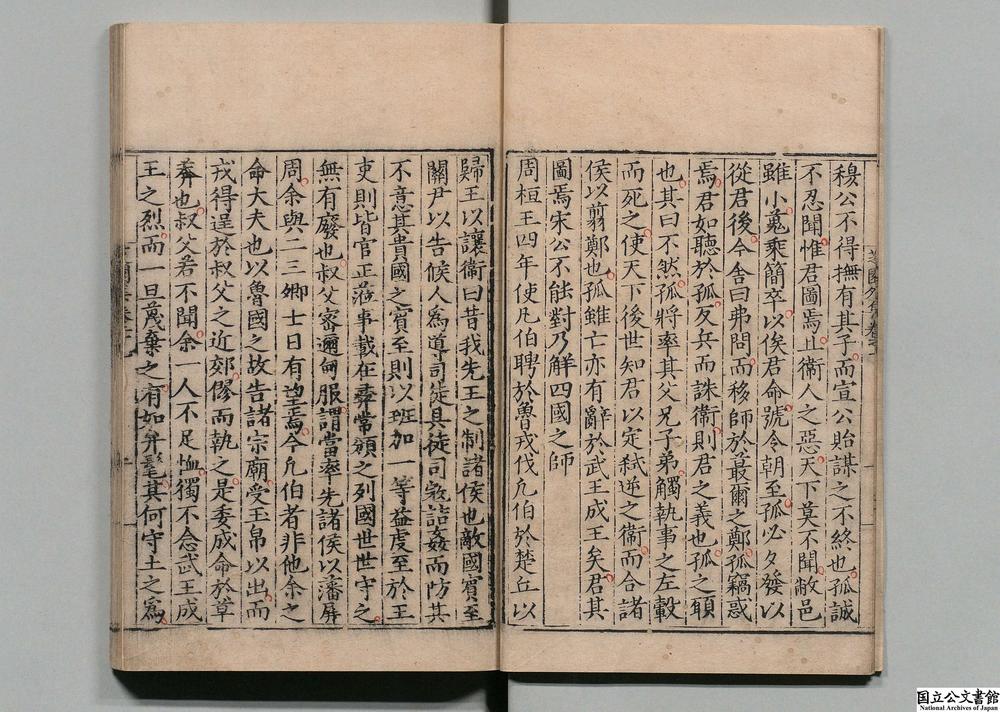 穆公不得撫有其子而宣公貽謀之不終也孤誠
不忍聞惟君圖焉且衞人之惡天下莫不聞敝邑
雖小蒐乘簡卒以俟君命號令朝至孤必夕發以
從君後今舍曰弗問而移師於蕞爾之鄭孤竊惑
焉君如聽於孤反兵而誅衞則君之義也孤之順
也其曰不然孤將率其父兄子弟觸執事之左轂
而死之使天下後世知君以定弑逆之衞而合諸
侯以翦鄭也孤雖亡亦有辭於武王成王矣君其
圖焉宋公不能對乃解四國之師
周桓王四年使凡伯聘於魯戎伐凡伯於楚丘以
歸王以讓衞曰昔我先王之制諸侯也敵國賓至
關尹以告候人為導司徒具徒司寇詰姦而防其
不意其貴國之賓至則以班加一等益虔至於王
吏則皆官正涖事載在彞常頒之列國世世守之
無有廢也叔父審邇甸服謂當率先諸侯以藩屏
周余與二三卿士日有望焉今凡伯者非他余之
命大夫也以魯國之故告諸宗廟受玉帛以出而
戎得逞於叔父之近郊僇而執之是委成命於草
莽也叔父若不聞余一人不足恤獨不念武王成
王之烈而一旦蔑棄之有如弁髦其何守土之為
国立公文書館
National Archives of Japan